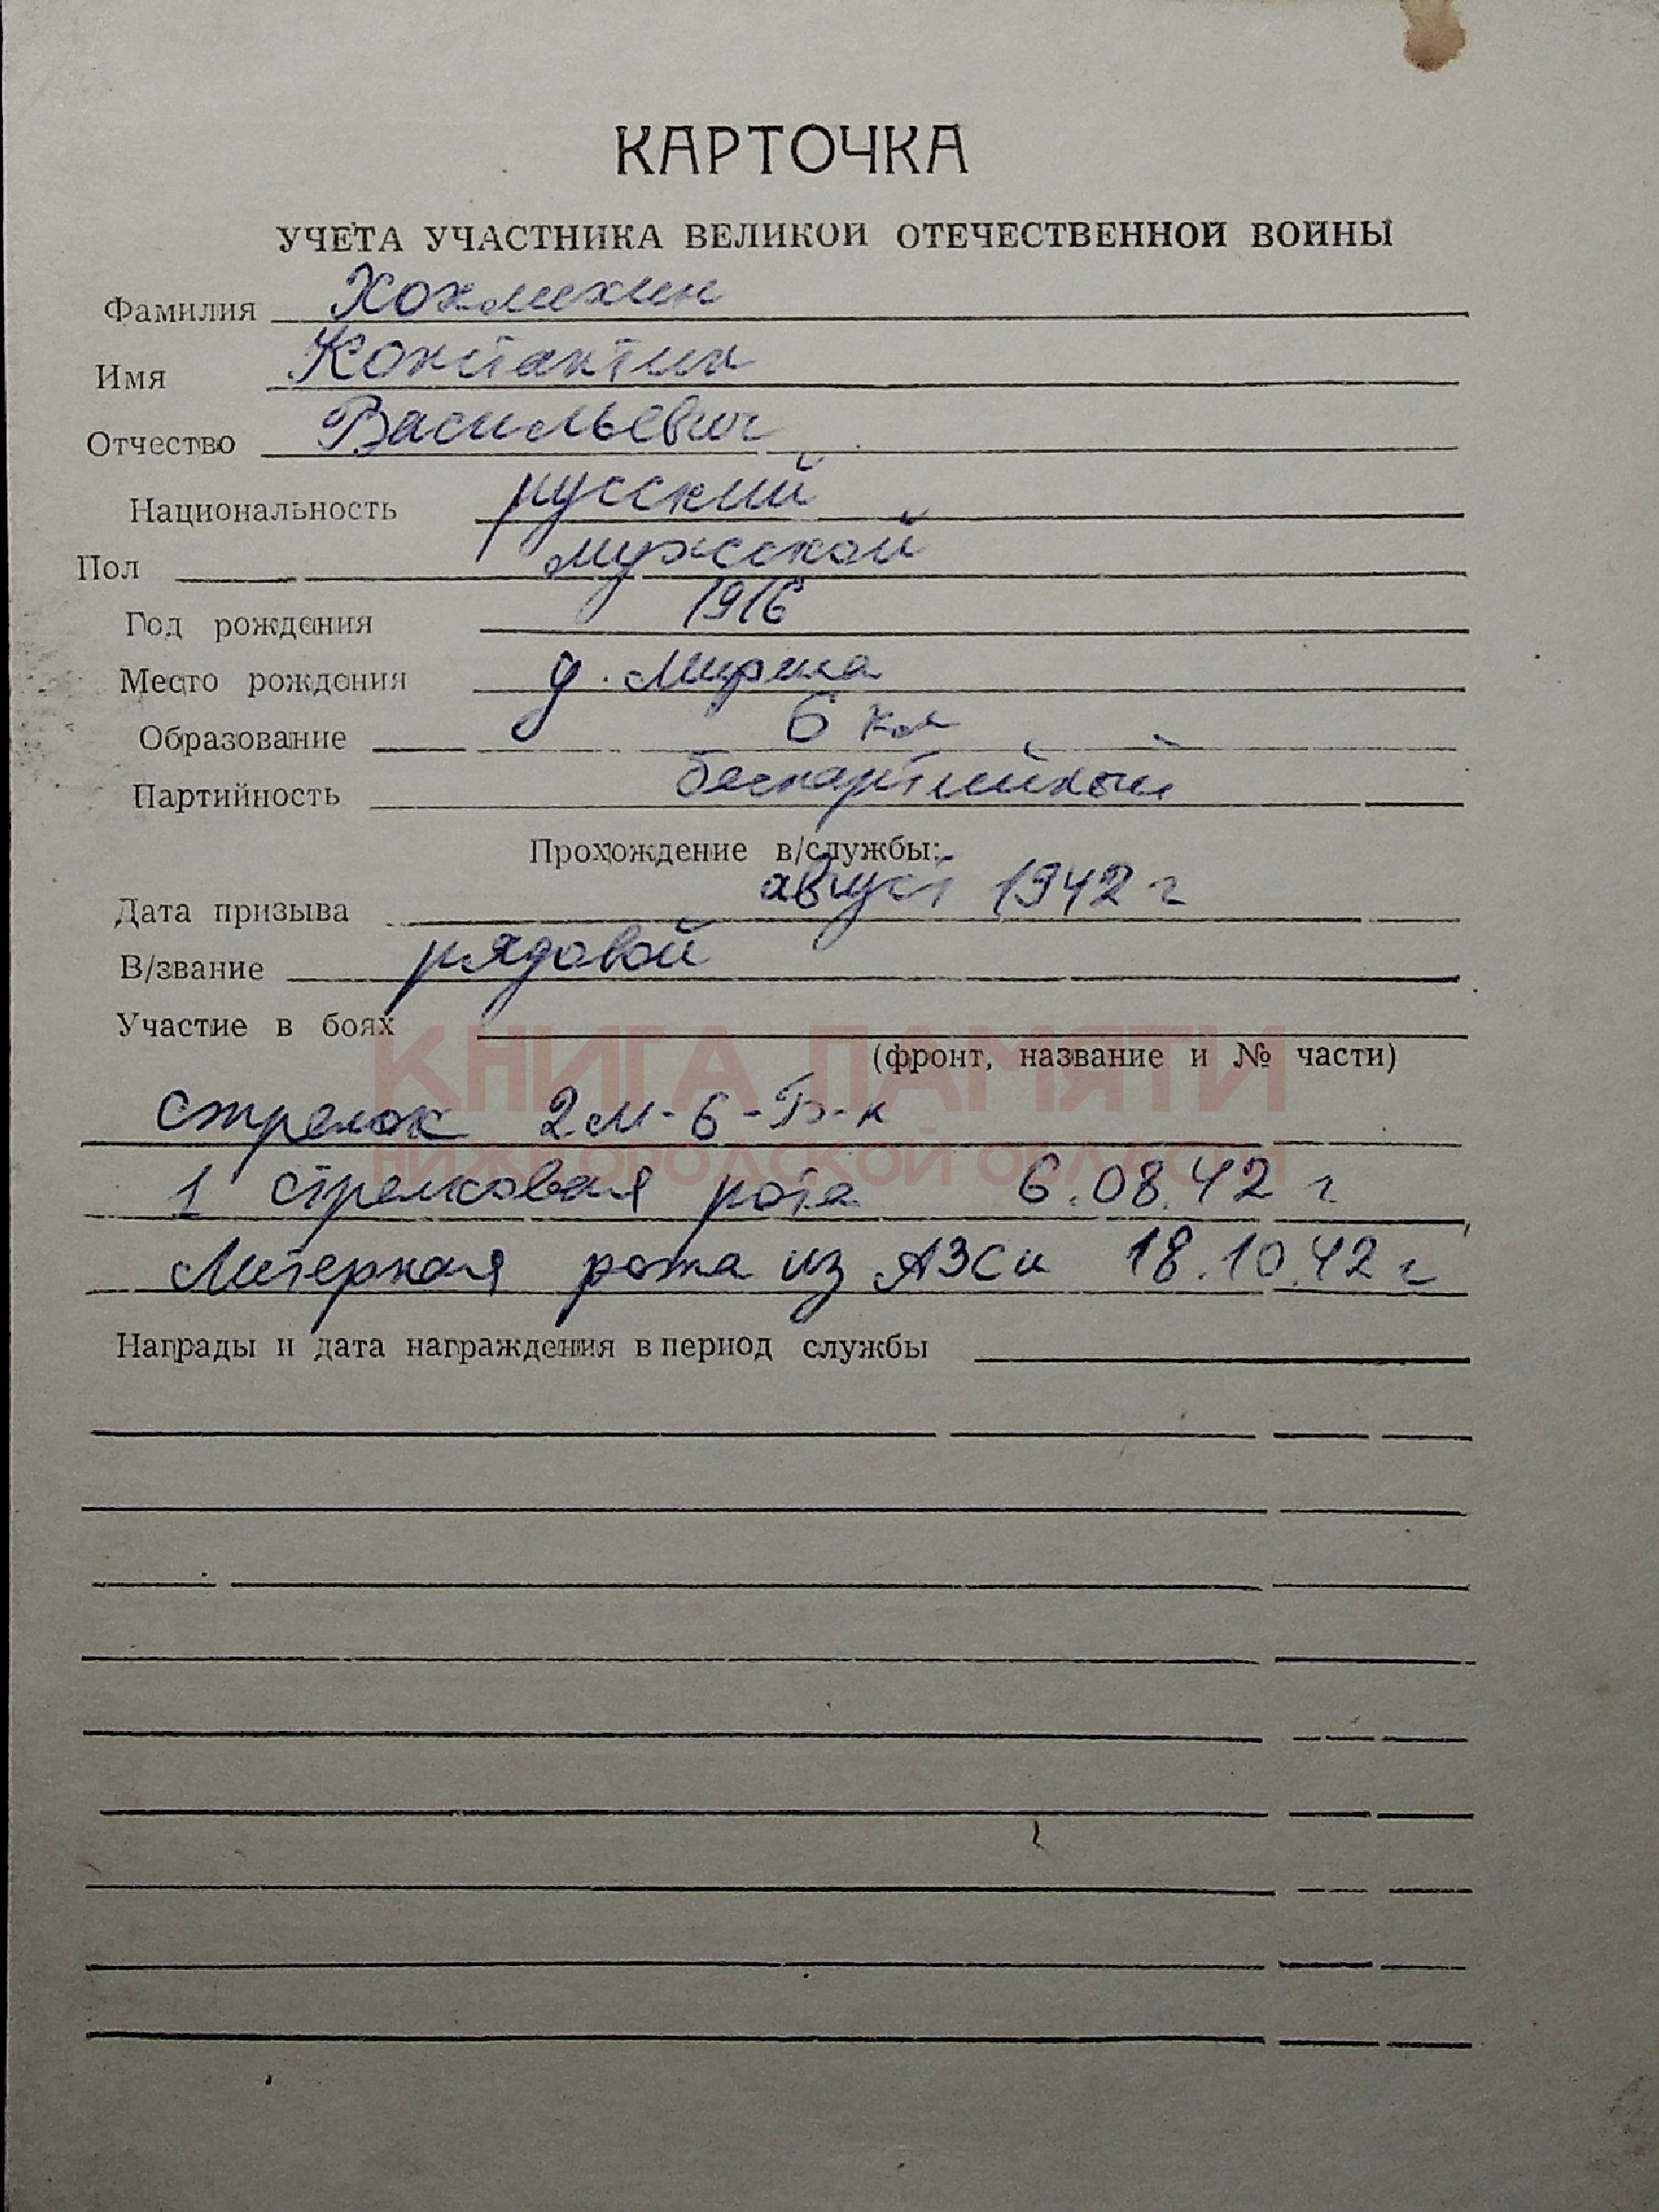 КАРТОЧКА
УЧЕТА УЧАСТНИКА ВЕЛИКОЙ ОТЕЧЕСТВЕННОЙ ВОЙНЫ
Фамилия Хохмихин
Имя Константин
Отчество Васильевич
Национальность русский
Пол мужской
Год рождения 1916
Место рождения д.
Образование 6 кл
Партийность беспартийный
Прохождение в/службы:
Дата призыва август 1942 г
В/звание рядовой
Участие в боях
(фронт, название и № части)
КНИГА ПАМЯТИ
стрелок 2М-6-Б-к
НИЖЕГОРОДСКОЙ ОБЛАСТИ
1 стрелковая рота 6.08.42 г
Литерная рота из АЗСи 18.10.42 г
Награды и дата награждения в период службы